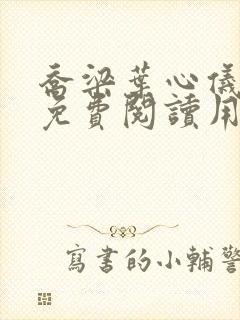 喬梁葉心儀
免費閱讀用
寫書的小輔警